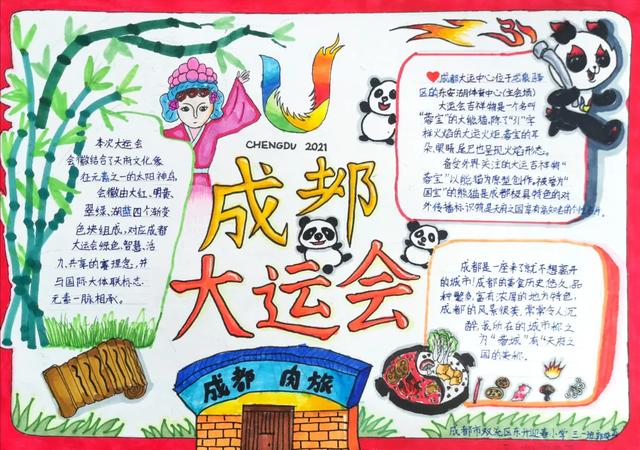 CHENGDU 2021
成都
大运会
本次大运会
会徽结合了天府文化象
征元素之一的太阳神鸟
会徽由大红、明黄、
翠绿、湖蓝四个渐变
色块组成,对应成都
大运会绿色、智慧、活
力、共享的办赛理念,并
与国际大体联标志
元素一脉相承。
成都大运中心位于龙泉驿
区的东安湖体育中心(主会场)
大运会吉祥物是一个名叫
"蓉宝"的大熊猫,除了"31"字
样火焰的大运火炬,蓉宝的耳
朵、眼睛、尾巴也呈现火焰形态。
备受外界关注的大运吉祥物"
蓉宝"以熊猫为原型创作。被誉为"
国宝"的熊猫是成都极具特色的对
外传播标识物是天府之国
成都是一座来了就不想离开
的城市!成都的美食历史悠久,品
种繁多,富有浓厚的地方特色,
成都的风景很美,常常令人沉
醉,我所在的城市称之
为"蓉城"有"天府之
国的美称。
成都 肉旅
成都市双流区东升迎春小学 三